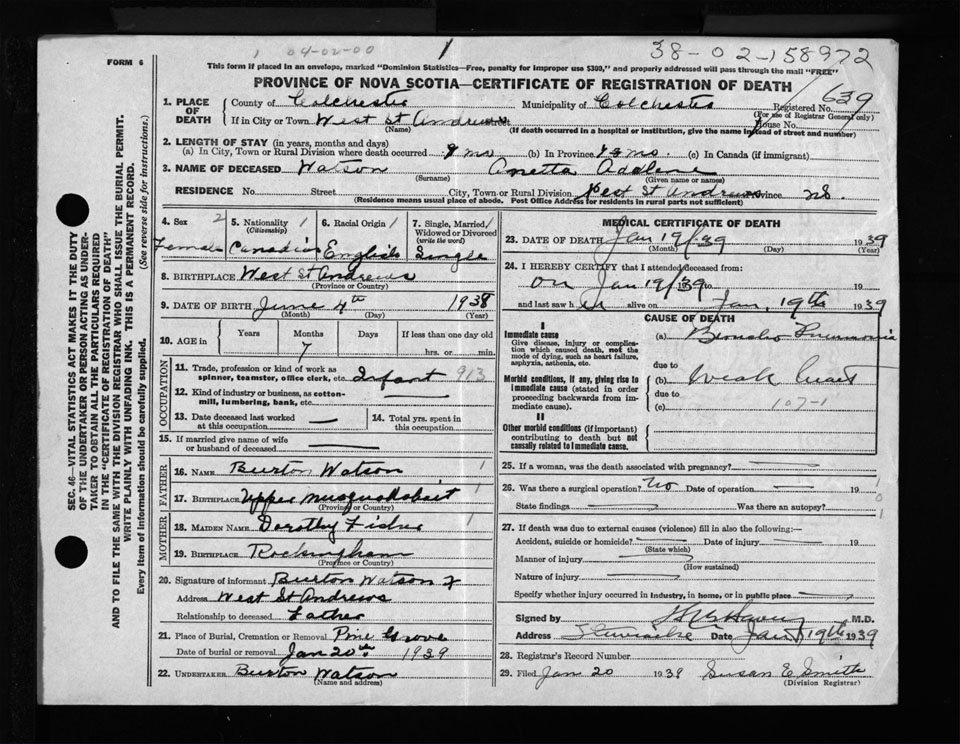 1 04-02-00 1 38-02-158972
FORM 6
This form if placed in an envelope, marked "Dominion Statistics—Free, penalty for improper use $300," and properly addressed will pass through the mail "FREE"
PROVINCE OF NOVA SCOTIA—CERTIFICATE OF REGISTRATION OF DEATH
SEC. 46—VITAL STATISTICS ACT MAKES IT THE DUTY
OF THE UNDERTAKER OR PERSON ACTING AS UNDER-
TAKER TO OBTAIN ALL THE PARTICULARS REQUIRED
IN THE "CERTIFICATE OF REGISTRATION OF DEATH"
AND TO FILE THE SAME WITH THE DIVISION REGISTRAR WHO SHALL ISSUE THE BURIAL PERMIT.
WRITE PLAINLY WITH UNFADING INK. THIS IS A PERMANENT RECORD.
Every item of information should be carefully supplied. (See reverse side for instructions.)
1. PLACE OF DEATH County of Colchester Municipality of Colchester Registered No. 639
(For use of Registrar General only)
If in City or Town West St Andrews House No.
(Name) (If death occurred in a hospital or institution, give the name instead of street and number)
2. LENGTH OF STAY (in years, months and days)
(a) In City, Town or Rural Division where death occurred mo (b) In Province mo. (c) In Canada (if immigrant)
3. NAME OF DECEASED Watson Anetta
(Surname) (Given name or names)
RESIDENCE No. Street City, Town or Rural Division West St Andrews Province NS.
(Residence means usual place of abode. Post Office Address for residents in rural parts not sufficient)
4. Sex 2 Female
5. Nationality 1 (Citizenship) Canadian
6. Racial Origin 1 English
7. Single, Married, Widowed or Divorced (write the word) 1 Single
8. BIRTHPLACE West St Andrews
(Province or County)
9. DATE OF BIRTH June 4th 1938
(Month) (Day) (Year)
10. AGE in Years Months Days If less than one day old
7 hrs. or min.
OCCUPATION
11. Trade, profession or kind of work as
spinner, teamster, office clerk, etc. Infant 913
12. Kind of industry or business, as cotton-
mill, lumbering, bank, etc. —
13. Date deceased last worked
at this occupation —
14. Total yrs. spent in
this occupation —
15. If married give name of wife
or husband of deceased —
FATHER
16. NAME Burton Watson 1
17. BIRTHPLACE Upper Musquodoboit 1
(Province or County)
MOTHER
18. MAIDEN NAME Dorothy Fisher 1
19. BIRTHPLACE Rockingham
(Province or Country)
20. Signature of informant Burton Watson
Address West St Andrews
Relationship to deceased Father
21. Place of Burial, Cremation or Removal Pine Grove
Date of burial or removal Jan 20th 1939
22. UNDERTAKER Burton Watson
(Name and address)
MEDICAL CERTIFICATE OF DEATH
23. DATE OF DEATH Jan 19/39 1939
(Month) (Day) (Year)
24. I HEREBY CERTIFY that I attended deceased from:
on Jan 19/39 19 to 19
and last saw h er alive on Jan. 19th 1939
CAUSE OF DEATH
I
Immediate cause
Give disease, injury or complica-
tion which caused death, not the
mode of dying, such as heart failure,
asphyxia, asthenia, etc.
(a) Broncho Pneumonia
due to
Morbid conditions, if any, giving rise to
immediate cause (stated in order
proceeding backwards from im-
mediate cause).
(b) Weak heart
due to
(c) 107-1
II
Other morbid conditions (if important)
contributing to death but not
causally related to immediate cause.
25. If a woman, was the death associated with pregnancy? —
26. Was there a surgical operation? No Date of operation — 19
State findings — Was there an autopsy?
27. If death was due to external causes (violence) fill in also the following:—
Accident, suicide or homicide? — Date of injury — 19
(State which)
Manner of injury —
(How sustained)
Nature of injury —
Specify whether injury occurred in industry, in home, or in public place —
Signed by M.D.
Address Date Jan 19th 1939
28. Registrar's Record Number
29. Filed Jan 20 1939 Susan E Smith
(Division Registrar)